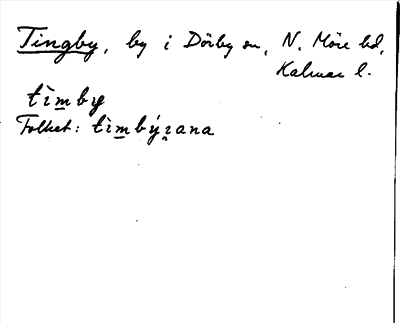 Tingby, by i Dörby sn, N. Möre hd,
Kalmar l.
tìmby
Folket: tìmbýɪana